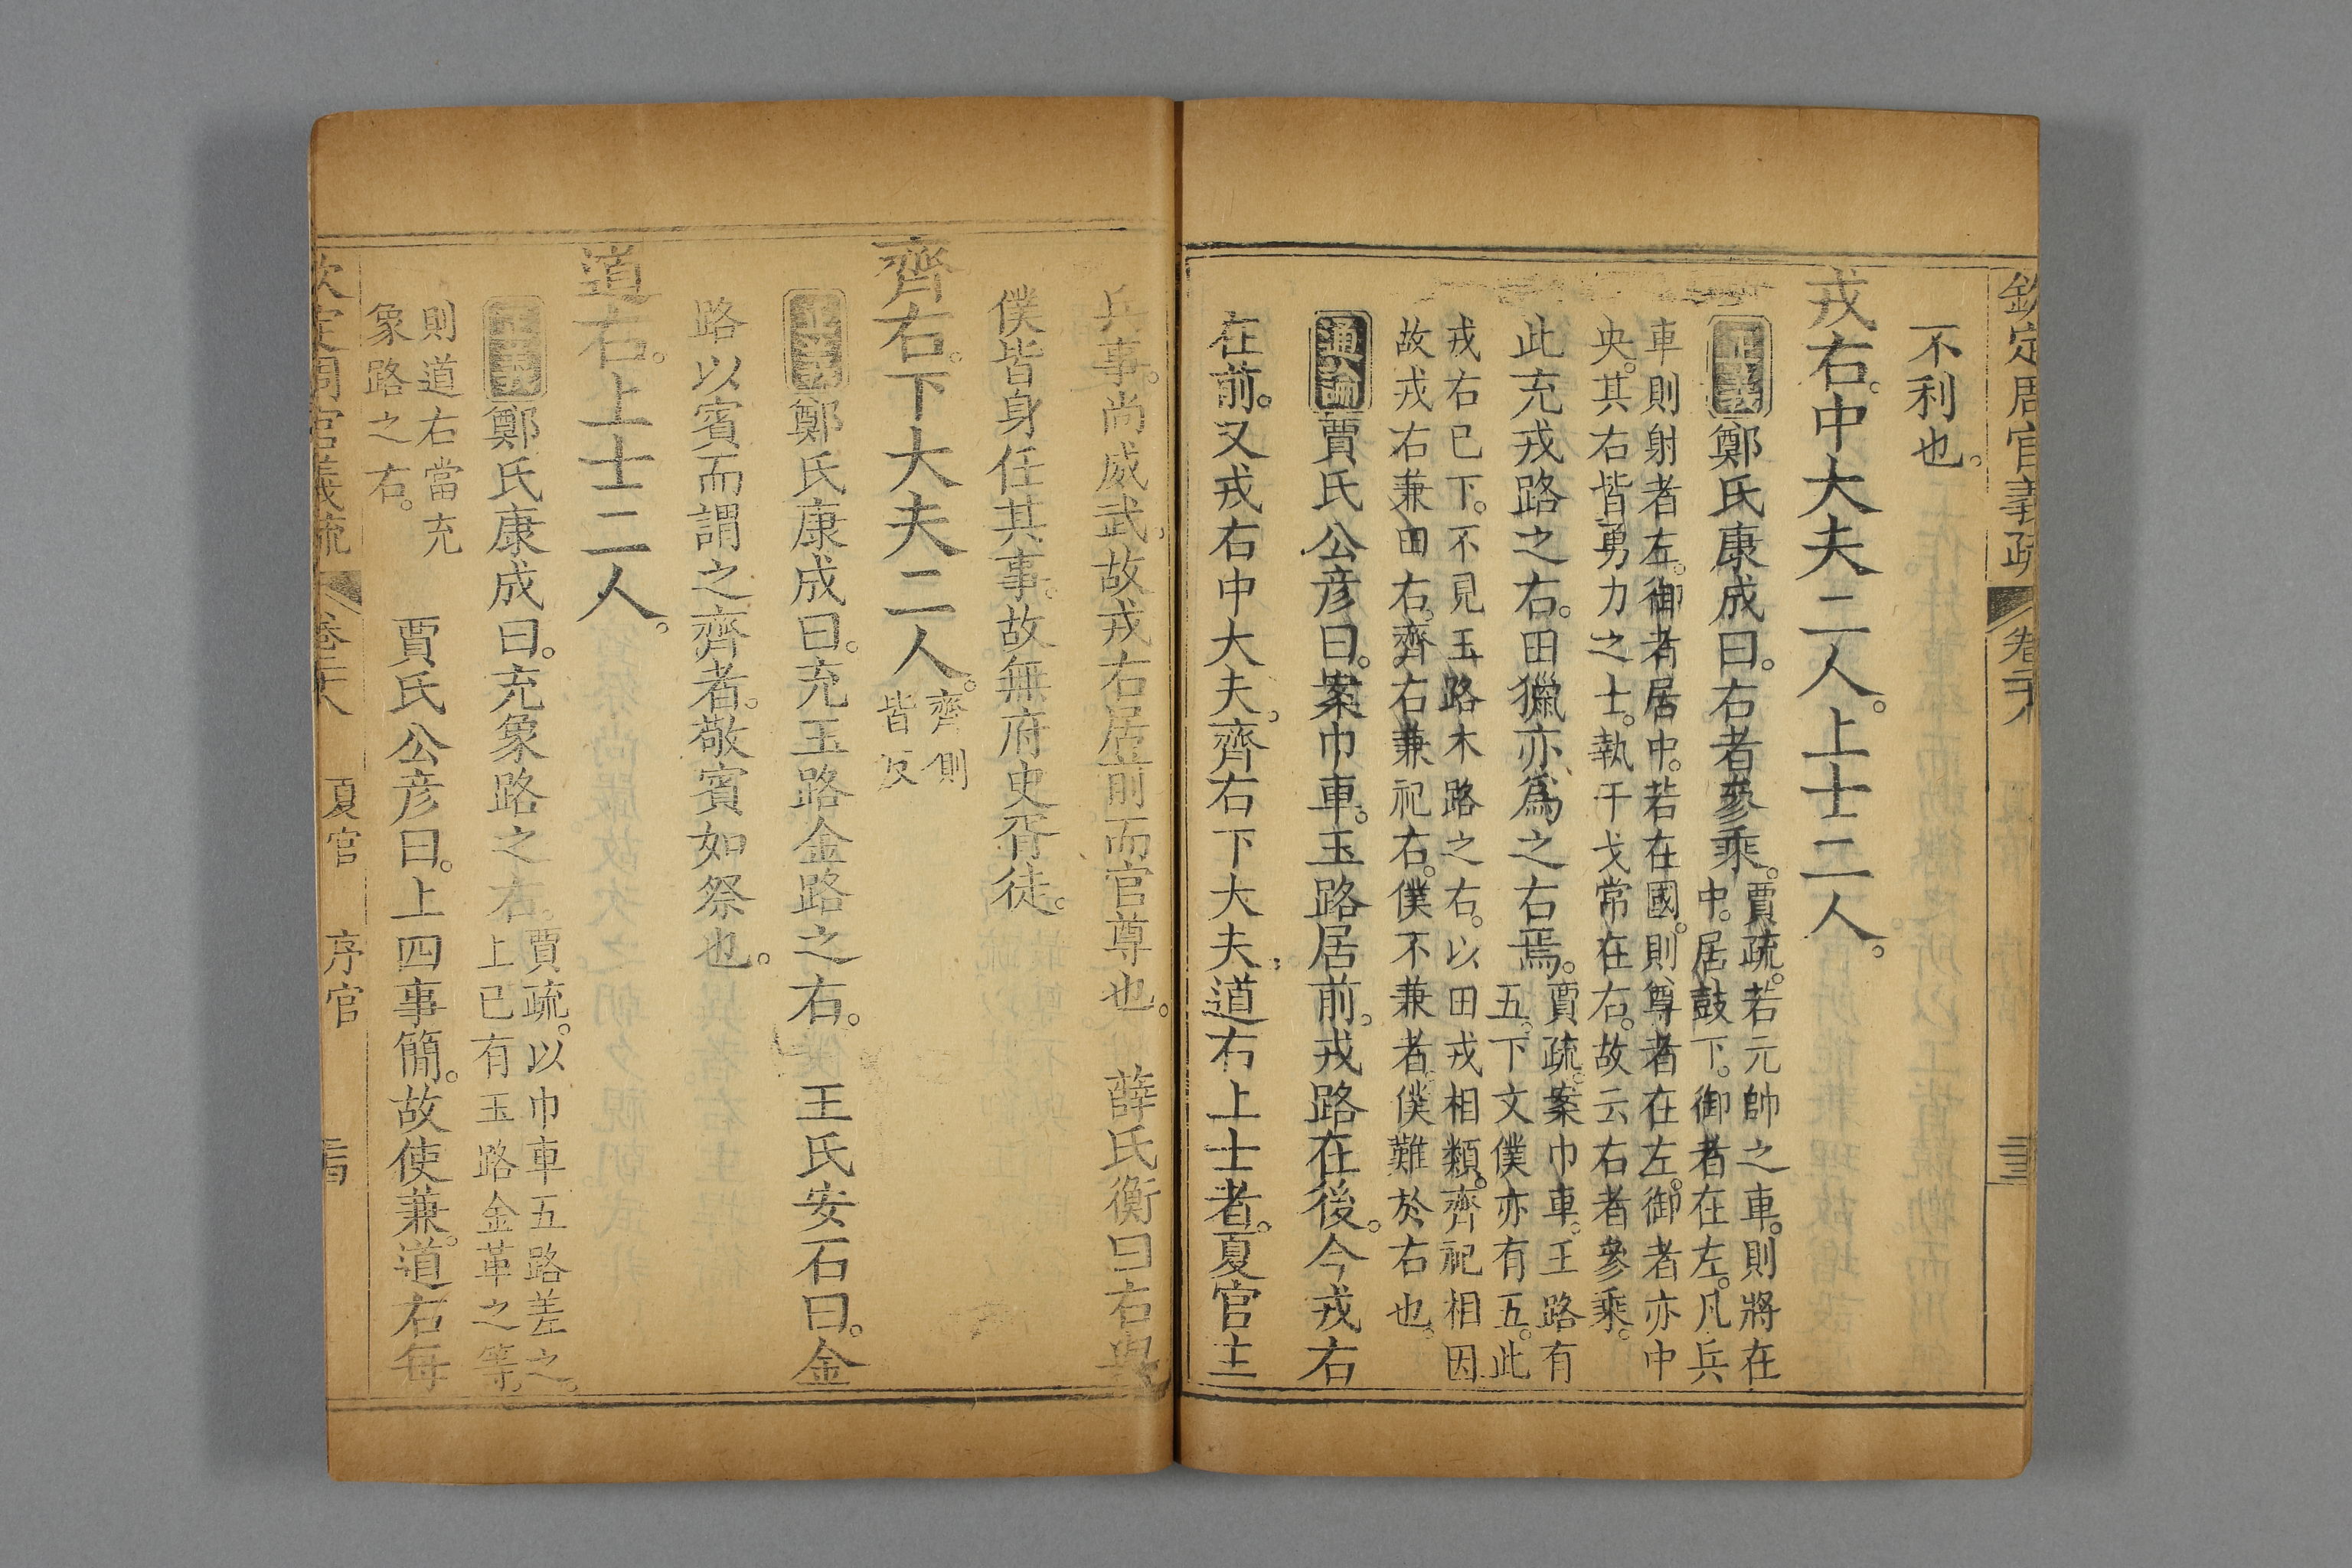 欽定周官義疏 卷二十八
不利也。
戎右。中大夫二人。上士二人。
正義鄭氏康成曰。右者參乘。賈疏。若元帥之車。則將在
中。居鼓下。御者在左。凡兵
車則射者左。御者居中。若在國。則尊者在左。御者亦中
央。其右皆勇力之士。執干戈常在右。故云右者參乘。
此充戎路之右。田獵亦爲之右焉。賈疏。案巾車。王路有
五。下文僕亦有五。此
戎右已下。不見玉路木路之右。以田戎相類。齊祀相因
故戎右兼田右。齊右兼祀右。僕不兼者。僕難於右也。
通論賈氏公彦曰。案巾車。玉路居前。戎路在後。今戎右
在前。又戎右中大夫。齊右下大夫。道右上士者。夏官主
兵事。尚威武。故戎右居前而官尊也。 薛氏衡曰右與
僕皆身任其事。故無府史胥徒。
齊右。下大夫二人。齊側
皆反
正義鄭氏康成曰。充玉路金路之右。 王氏安石曰。金
路以賓而謂之齊者。敬賓如祭也。
道右。上士二人。
正義鄭氏康成曰。充象路之右。賈疏。以巾車五路差之。
上已有玉路金革之等。
則道右當充
象路之右。 賈氏公彦曰。上四事簡。故使兼。道右每
欽定周官義疏 卷二十八 夏官 序官